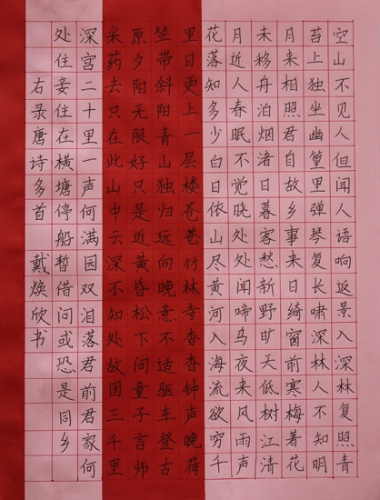 空山不见人但闻人语响返景入深林复照青
苔上独坐幽篁里弹琴复长啸深林人不知明
月来相照君自故乡事来日绮窗前寒梅着花
未移舟泊烟渚日暮客愁新野旷天低树江清
月近人春眠不觉晓处处闻啼鸟夜来风雨声
花落知多少白日依山尽黄河入海流欲穷千
里目更上一层楼苍苍竹林寺杳杳钟声晚荷
笠带斜阳青山独归远向晚意不适驱车登古
原夕阳无限好只是近黄昏松下问童子言师
采药去只在此山中云深不知处故国三千里
深宫二十里一声何满园双泪落君前君家何
处住妾住在横塘停船暂借问或恐是同乡
右录唐诗多首 戴焕欣书